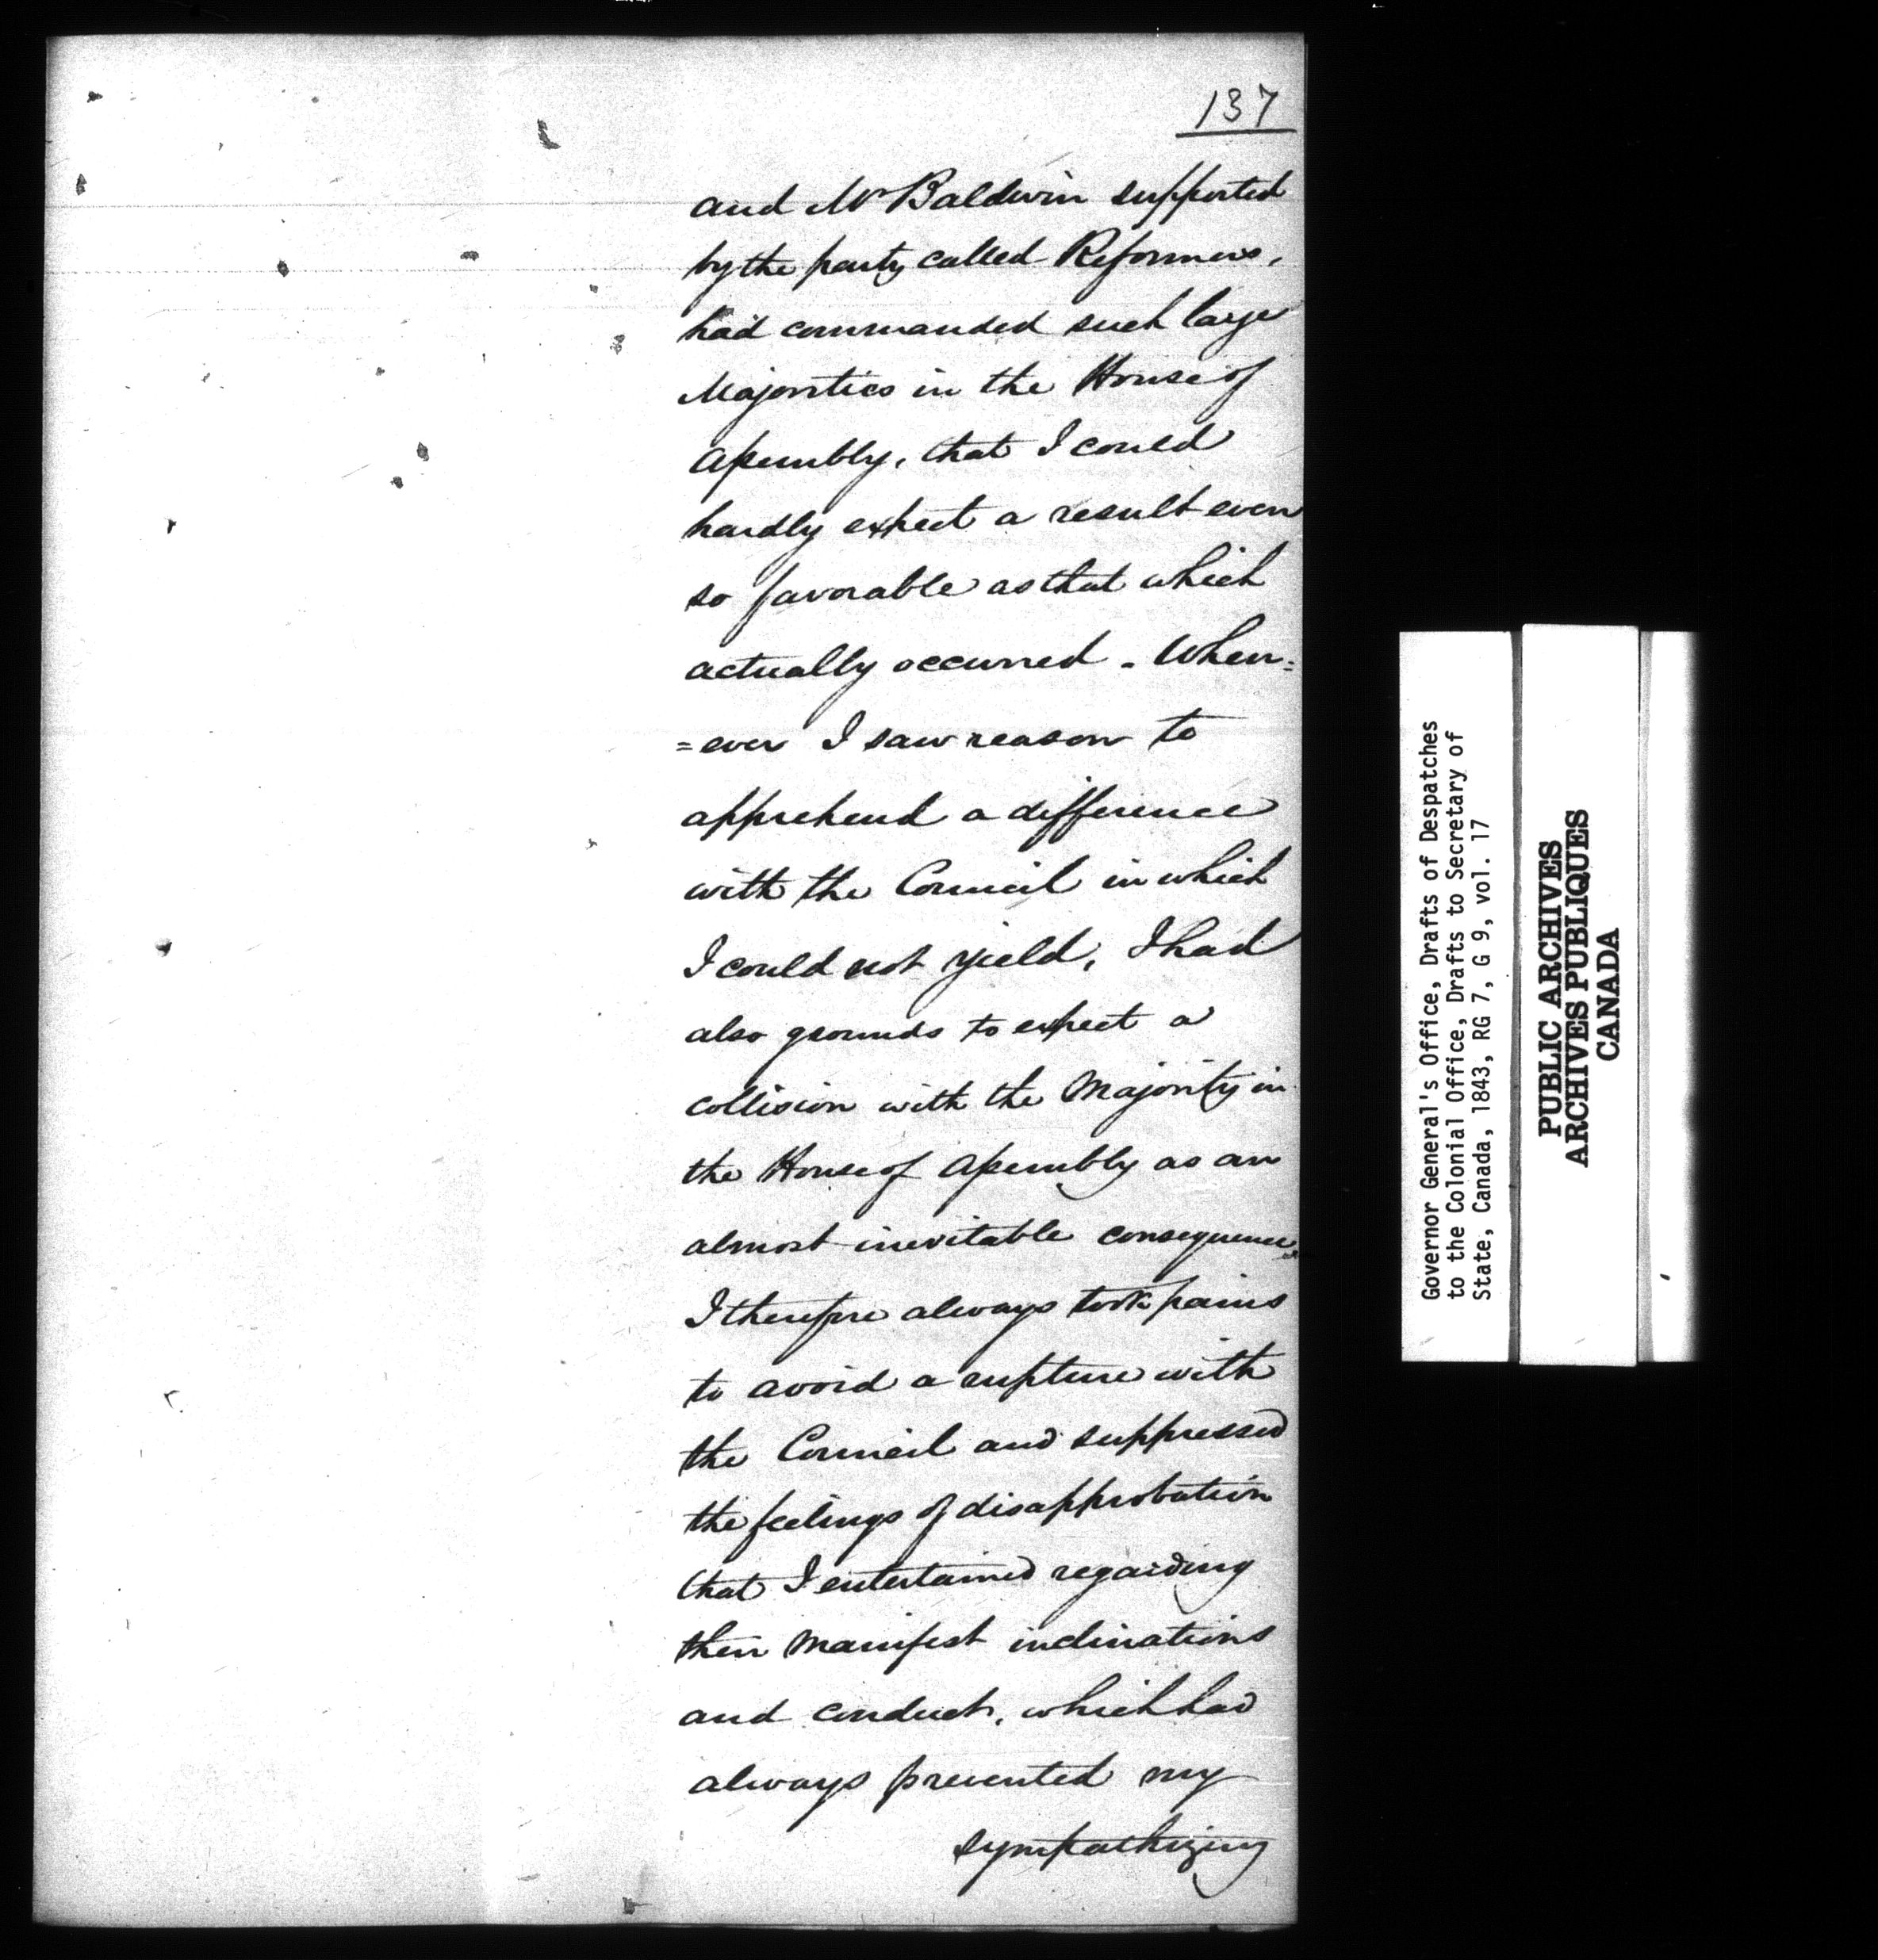 137
and Mr Baldwin supported
by the party called Reformers,
had commanded such large
Majorities in the House of
Assembly, that I could
hardly expect a result even
so favorable as that which
actually occurred. When=
=ever I saw reason to
apprehend a difference
with the Council in which
I could not yield, I had
also grounds to expect a
collision with the Majority in
the House of Assembly as an
almost inevitable consequence.
I therefore always took pains
to avoid a rupture with
the Council and suppressed
the feelings of disapprobation
that I entertained regarding
their manifest inclinations
and conduct, which had
always prevented my
sympathizing
Governor General's Office, Drafts of Despatches
to the Colonial Office, Drafts to Secretary of
State, Canada, 1843, RG 7, G 9, vol. 17
PUBLIC ARCHIVES
ARCHIVES PUBLIQUES
CANADA